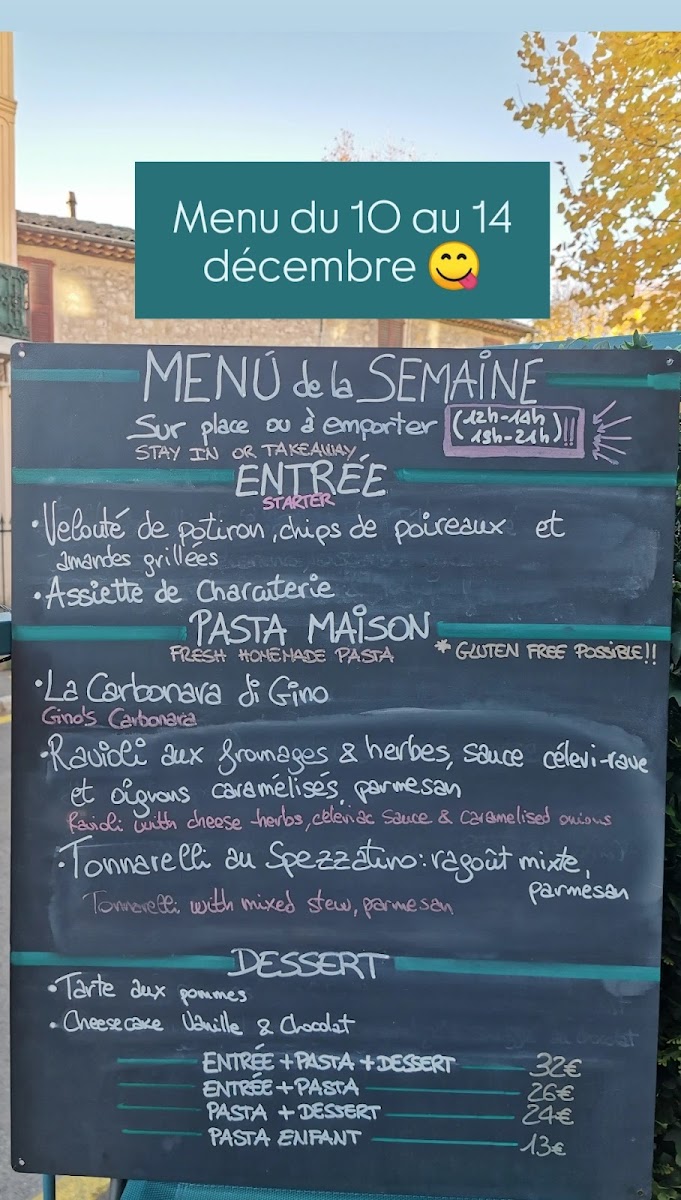 Menu du 10 au 14
décembre 😋
MENÚ de la SEMAINE
Sur place ou à emporter (12h-14h
19h-21h)!!
STAY IN OR TAKEAWAY
ENTRÉE
STARTER
•Velouté de potiron, chips de poireaux et
amandes grillées
•Assiette de Charcuterie
PASTA MAISON
FRESH HOMEMADE PASTA * GLUTEN FREE POSSIBLE!!
•La Carbonara di Gino
Gino's Carbonara
•Ravioli aux fromages & herbes, sauce céleri-rave
et oignons caramélisés, parmesan
Ravioli with cheese herbs, celeriac sauce & caramelised onions
•Tonnarelli au Spezzatino: ragoût mixte,
parmesan
Tonnarelli with mixed stew, parmesan
DESSERT
•Tarte aux pommes
•Cheesecake Vanille & Chocolat
ENTRÉE + PASTA + DESSERT 32€
ENTRÉE + PASTA 26€
PASTA + DESSERT 24€
PASTA ENFANT 13€